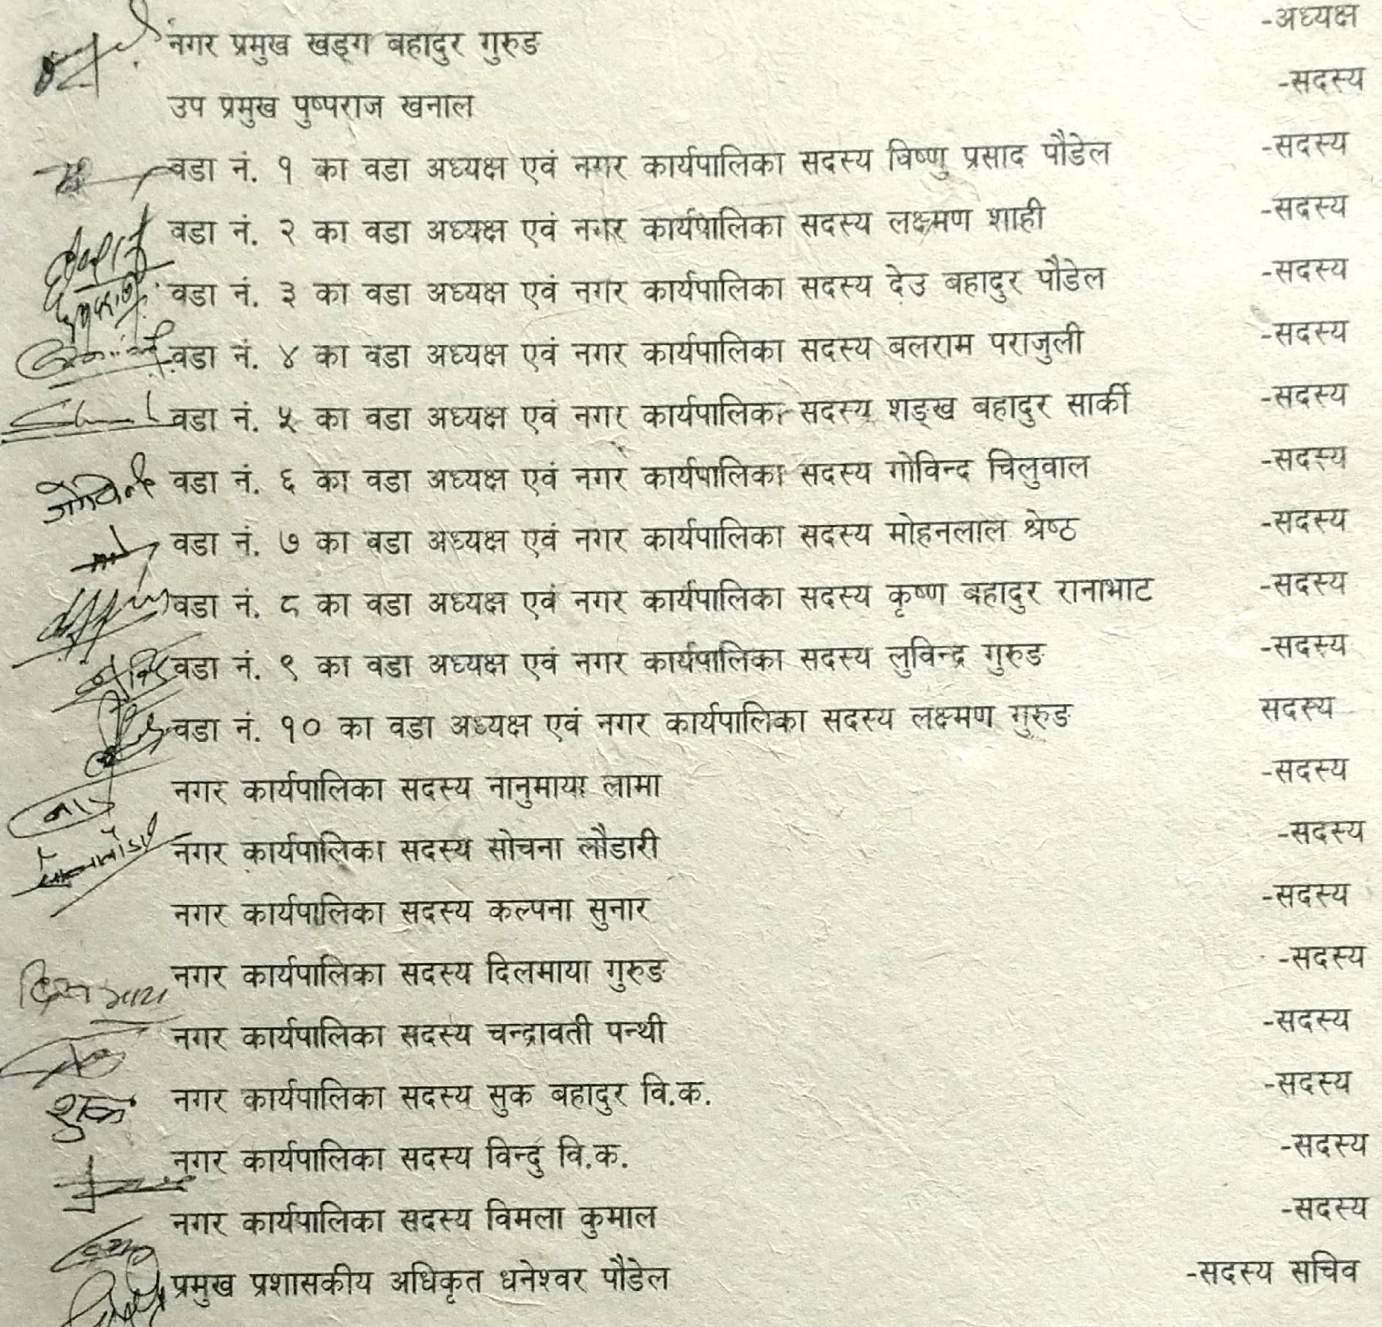 नगर प्रमुख खड्ग बहादुर गुरुङ -अध्यक्ष
उप प्रमुख पुष्पराज खनाल -सदस्य
वडा नं. १ का वडा अध्यक्ष एवं नगर कार्यपालिका सदस्य विष्णु प्रसाद पौडेल -सदस्य
वडा नं. २ का वडा अध्यक्ष एवं नगर कार्यपालिका सदस्य लक्ष्मण शाही -सदस्य
वडा नं. ३ का वडा अध्यक्ष एवं नगर कार्यपालिका सदस्य देउ बहादुर पौडेल -सदस्य
वडा नं. ४ का वडा अध्यक्ष एवं नगर कार्यपालिका सदस्य बलराम पराजुली -सदस्य
वडा नं. ५ का वडा अध्यक्ष एवं नगर कार्यपालिका सदस्य शङ्ख बहादुर सार्की -सदस्य
गोविन्द वडा नं. ६ का वडा अध्यक्ष एवं नगर कार्यपालिका सदस्य गोविन्द चिलुवाल -सदस्य
वडा नं. ७ का वडा अध्यक्ष एवं नगर कार्यपालिका सदस्य मोहनलाल श्रेष्ठ -सदस्य
वडा नं. ८ का वडा अध्यक्ष एवं नगर कार्यपालिका सदस्य कृष्ण बहादुर रानाभाट -सदस्य
वडा नं. ९ का वडा अध्यक्ष एवं नगर कार्यपालिका सदस्य लुविन्द्र गुरुङ -सदस्य
वडा नं. १० का वडा अध्यक्ष एवं नगर कार्यपालिका सदस्य लक्ष्मण गुरुङ सदस्य
नगर कार्यपालिका सदस्य नानुमाया लामा -सदस्य
नगर कार्यपालिका सदस्य सोचना लौडारी -सदस्य
नगर कार्यपालिका सदस्य कल्पना सुनार -सदस्य
दिलमाया नगर कार्यपालिका सदस्य दिलमाया गुरुङ -सदस्य
नगर कार्यपालिका सदस्य चन्द्रावती पन्थी -सदस्य
शुक नगर कार्यपालिका सदस्य सुक बहादुर वि.क. -सदस्य
नगर कार्यपालिका सदस्य विन्दु वि.क. -सदस्य
नगर कार्यपालिका सदस्य विमला कुमाल -सदस्य
प्रमुख प्रशासकीय अधिकृत धनेश्वर पौडेल -सदस्य सचिव